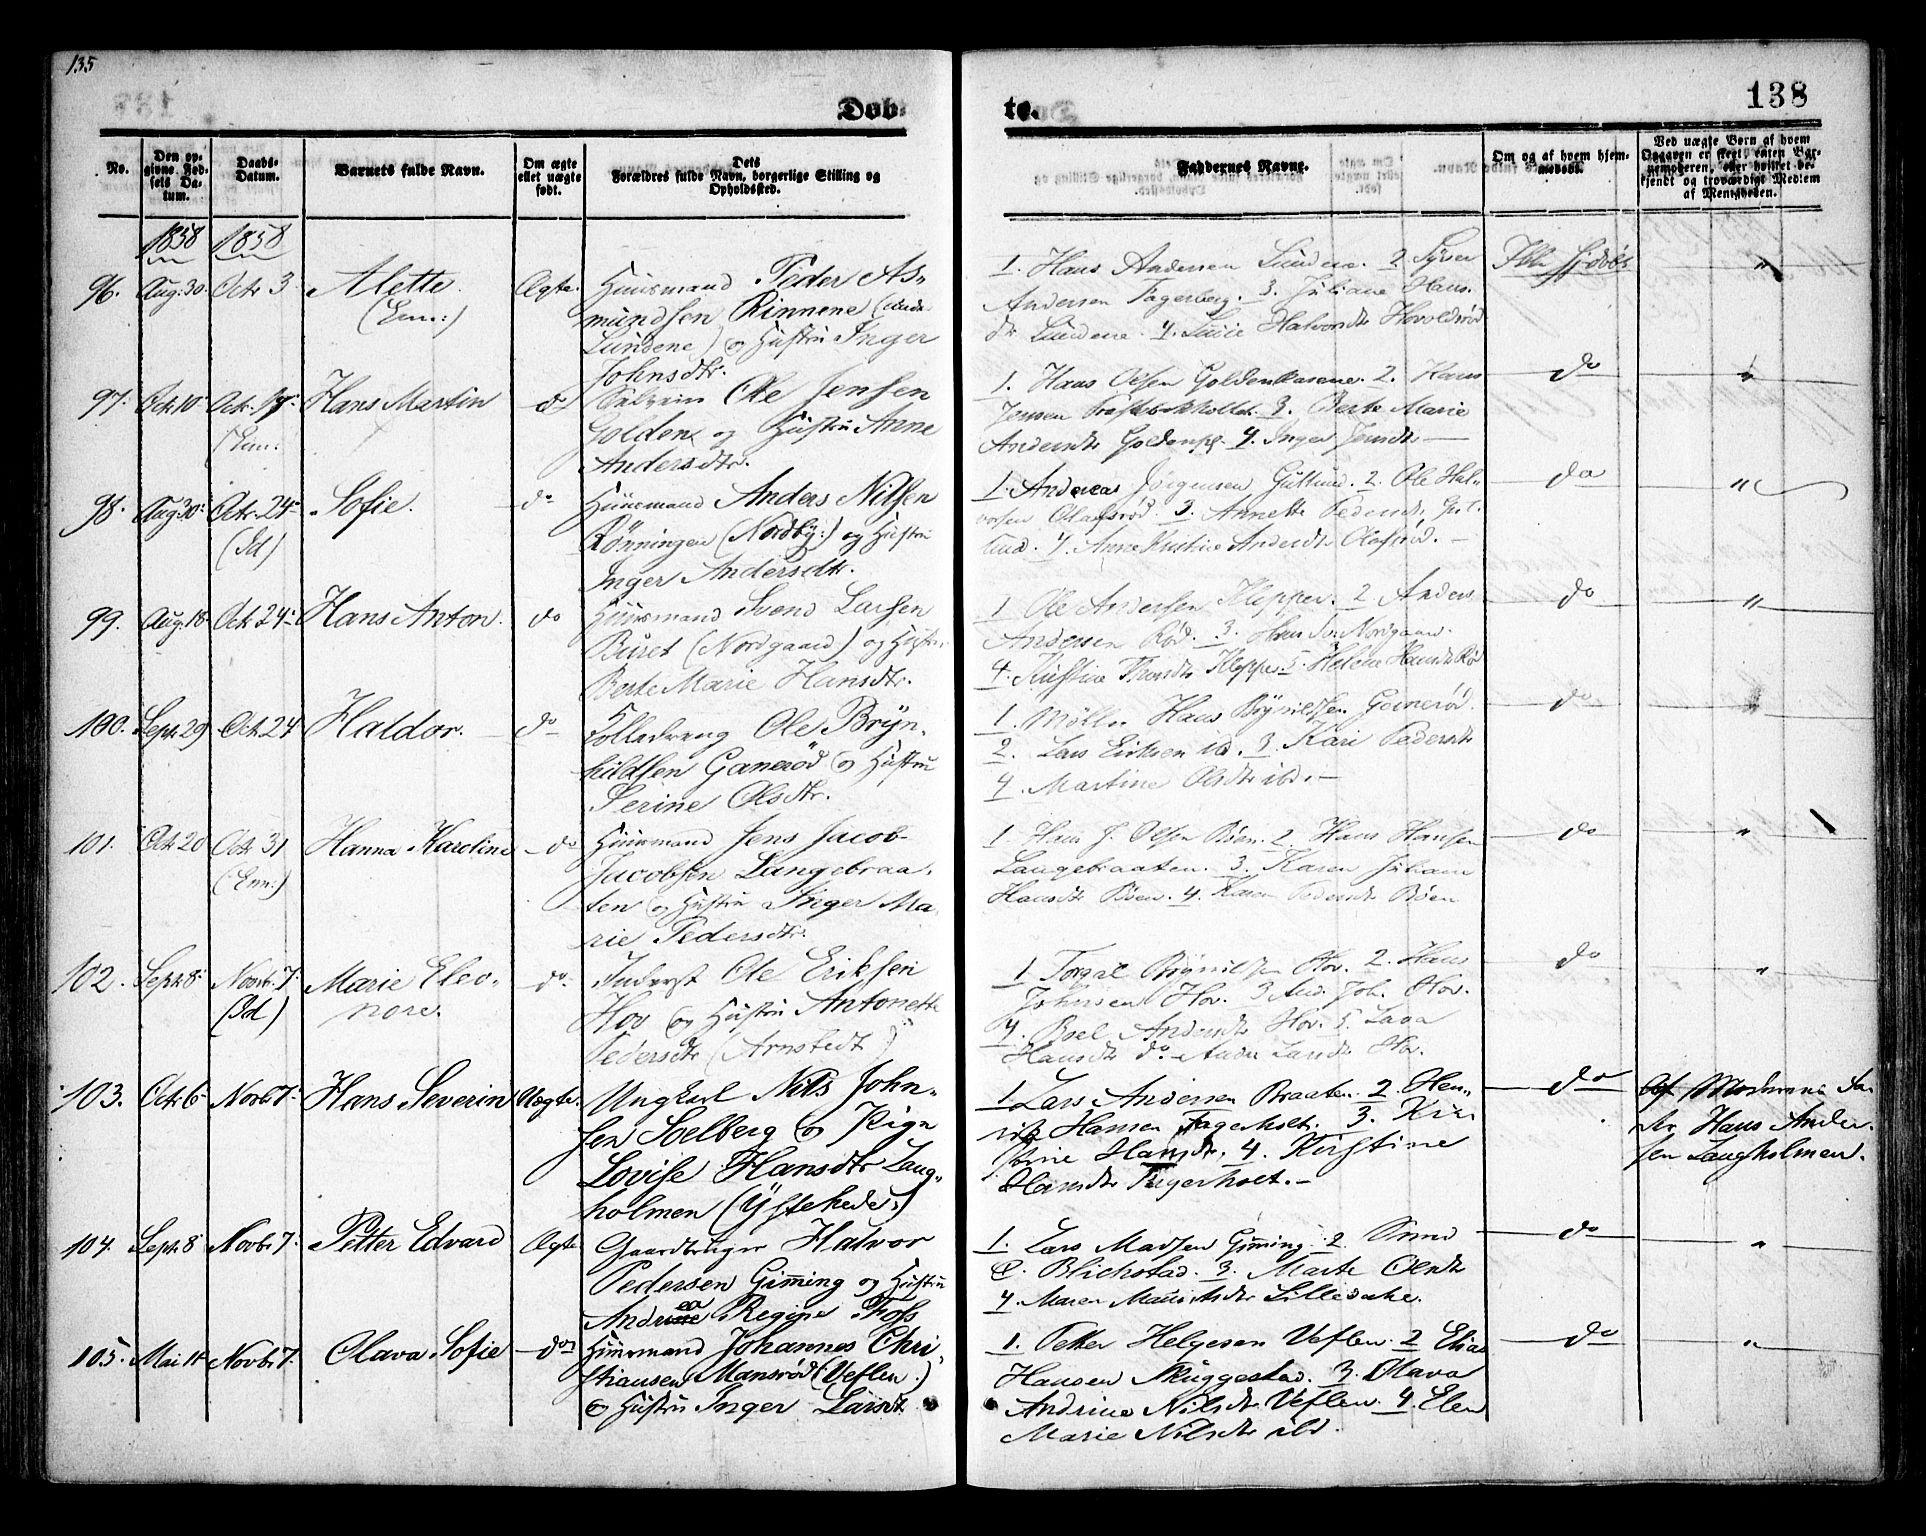 135
138
Døb-
te.
No.
Den op-
givne Fød-
sels Da-
tum.
Daabs-
Datum.
Barnets fulde Navn.
Om ægte
eller uægte
født.
Dets
Forældres fulde Navn, borgerlige Stilling og
Opholdssted.
Faddernes Navne.
Om og af hvem hjem-
medøbt.
Ved uægte Børn af hvem
Opgaven er skeet, enten Bar-
nemoderen, eller hvilket be-
kjendt og troværdigt Medlem
af Menigheden.
1858 1858
96. Aug. 30. Octr 3 Alette. Ægte. Huusmand Peder As-
(Enn:) mundsen Rinnene (
Lundene) og Hustru Inger
Johnsdtr.
1. Hans Andersen Lundene. 2.
Andersen Fagerberg. 3. Juliane Hans-
dtr Lundene. 4. Halvorsdtr
97. Octr. 10 Octr. 17. Hans Martin do Ole Jensen
(Enn. Golden og Hustru Anne
Andersdtr.
1. Hans Olsen 2. Hans do "
Jensen 3. Berte Marie
Andersdtr 4. Inger Jensdtr
98. Aug 30. Octr. 24 Sofie. do Huusmand Anders Nilsen
(Id) Rønningen (Nordby:) og Hustru
Inger Andersdtr.
1. Andreas Jørgensen Gultund. 2. Ole Hal- do "
vorsen Olafsrød 3. Annette Pedersdtr Gul-
tund. 4. Anne Kristine Andersdtr Olafsrød.
99. Aug. 18. Octr 24. Hans Anton. do Huusmand Svend Larsen
Buret (Nordgaard) og Hustru
Berte Marie Hansdtr.
1 Ole Andersen Klepper. 2. Anders do "
Andersen Rød. 3. Hans Nordgaard.
4. Kristine Klepper 5 Helene Hansdtr Rød
100. Sept. 29 Oct. 24 Haldor. do Ole Bryn-
hildsen Ganerød og Hustru
Serine Olsdtr.
1. Hans Brynildsen Ganerød. do "
2. Lars Eriksen ibd. 3. Kari Pedersdtr
4. Martine Olsdtr ibd.
101. Octr 20 Octr 31 Hanna Karoline do Huusmand Jens Jacob
(Enn:) Jacobsen Langebraa-
ten og Hustru Inger Ma-
rie Pedersdtr.
1. Hans J. Olsen Bøen. 2 Hans Hansen do "
Langebraaten. 3. Karen Juliane
Hansdtr Bøen. 4. Karen Pedersdtr Bøen
102. Sept. 8. Novbr. 7. Marie Eleo- do. Inderst Ole Eriksen
(Id) nore. Hov og Hustru Antonette
Pedersdtr (Arnstedt)
1. Brynildsen Hov. 2. Hans do "
Johnsen Hov. 3 And. Joh. Hov.
4. Andersdtr Hov. 5. Lava
Hansdtr do. Hov.
103. Octr 6 Novbr 7. Hans Severin Uægte. Ungkarl Nils John-
sen Solberg og Pige
Lovise Hansdtr Lang-
holmen (Ystehede:)
1. Lars Andersen Braaten. 2. Hen- do
rik Hansen Fagerholt. 3. Kri-
stine Hansdtr. 4. Kirstine
Hansdtr Fagerholt.
Af Moderens Fa-
der Hans Ander-
sen Langholmen.
104. Sept 8 Novbr 7. Petter Edvard Ægte Gaardbruger Halvor
Pedersen Gimming og Hustru
Andrea Regine Foss
1. Lars Madsen Gimming. 2. do "
C. Blichstad. 3. Marte Olsdtr
4. Maren Mauritsdtr Lillesæke.
105. Mai 18 Novbr 7. Olava Sofie do Huusmand Johannes Chri-
stiansen Mansrød (Veflen.)
og Hustru Inger Larsdtr
1. Petter Helgesen Veflen. 2 Elias do "
Hansen Skuggestad. 3. Olava
Andrine Nilsdtr Veflen. 4. Elen
Marie Nilsdtr ibd.